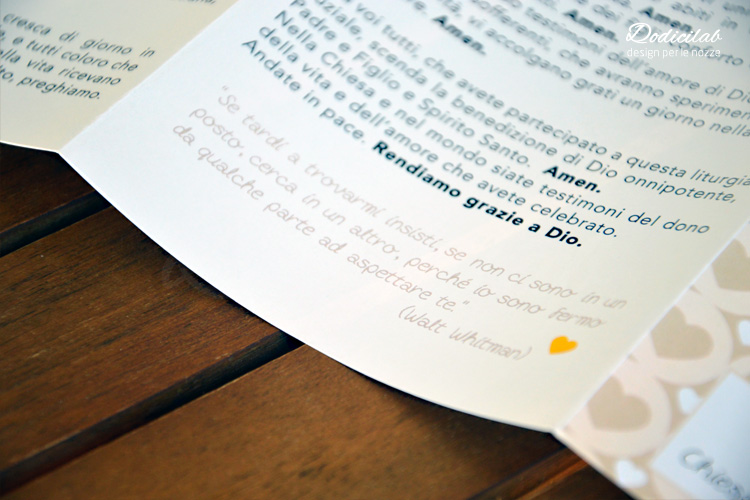 Dodicilab
design per le nozze
cresca di giorno in
e tutti coloro che
vita ricevano
preghiamo.
Amen.
Amen.
testimoni dell'amore di Dio
che avranno
vi accolgano grati un giorno nella
Amen.
voi che avete partecipato a questa liturgia
la benedizione di Dio onnipotente,
Padre e Figlio e Spirito Santo. Amen.
Nella Chiesa e nel mondo siate testimoni del dono
della vita e dell'amore che avete celebrato.
Andate in pace. Rendiamo grazie a Dio.
"Se tardi a trovarmi insisti, se non ci sono in un
posto, cerca in un altro, perché io sono fermo
da qualche parte ad aspettare te."
(Walt Whitman)